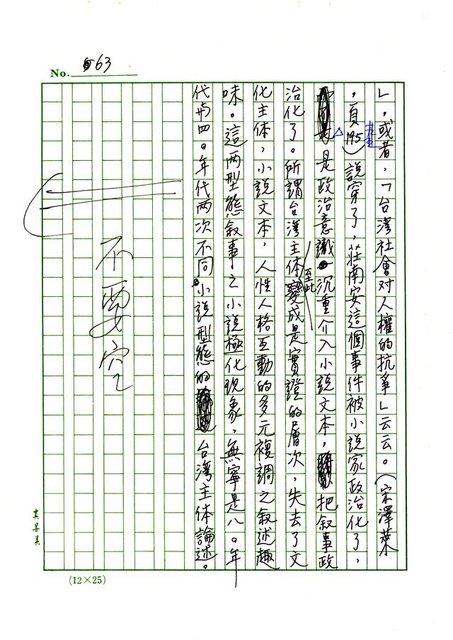 No. 63
」，或者，「台灣社會對人權的抗爭」云云。（宋澤萊
，頁195）說穿了，莊南安這個事件被小說家政治化了，
是政治意識沉重介入小說文本，把敘事政
治化了。所謂台灣主體至此變成是實證的層次，失去了文
化主體，小說文本，人性人格互動的多元複調之敘述趣
味。這兩型態敘事之小說極化現象，無寧是八〇年
代与四〇年代兩次不同小說型態的台灣主體論述。
不要空
(12×25)